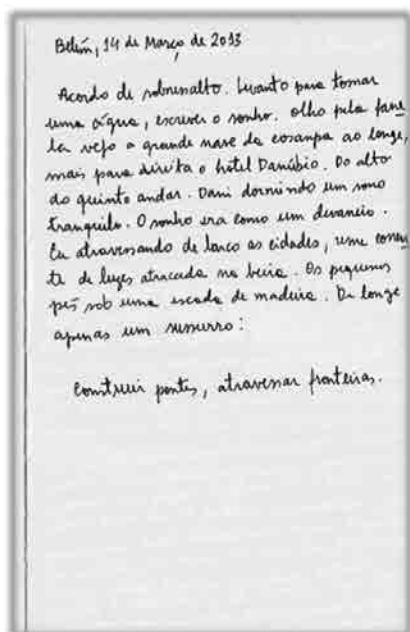 Belém, 14 de Março de 2013
Acordo de sobressalto. Levanto para tomar
uma água, escrever o sonho. Olho pela jane
la vejo a grande nave da cosanpa ao longe,
mais para direita o hotel Danúbio. Do alto
do quinto andar. Dani dormindo um sono
tranquilo. O sonho era como um devaneio.
Eu atravessando de barco as cidades, uma corren
te de luzes atracada na beira. Os pequenos
pés sob uma escada de madeira. De longe
apenas um sussurro:
Construir pontes, atravessar fronteiras.